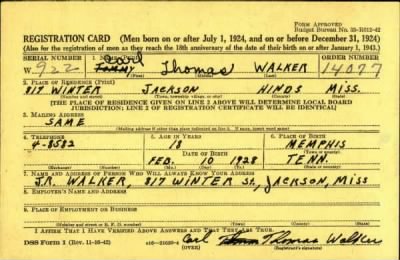 FORM APPROVED
Budget Bureau No. 33-R012-42
REGISTRATION CARD (Men born on or after July 1, 1924, and on or before December 31, 1924)
(Also for the registration of men as they reach the 18th anniversary of the date of their birth on or after January 1, 1943.)
SERIAL NUMBER 1. ORDER NUMBER
Carl
W. 922 Thomas WALKER 14077
(First) (Middle) (Last)
2. PLACE OF RESIDENCE (Print)
817 WINTER JACKSON HINDS MISS.
(Number and street) (Town, township, village, or city) (County) (State)
[THE PLACE OF RESIDENCE GIVEN ON LINE 2 ABOVE WILL DETERMINE LOCAL BOARD
JURISDICTION; LINE 2 OF REGISTRATION CERTIFICATE WILL BE IDENTICAL]
3. MAILING ADDRESS
SAME
(Mailing address if other than place indicated on line 2. If same, insert word same)
4. TELEPHONE 5. AGE IN YEARS 6. PLACE OF BIRTH
4-8582 18 MEMPHIS
DATE OF BIRTH
FEB. 10 1928 TENN.
(Mo.) (Day) (Yr.)
7. NAME AND ADDRESS OF PERSON WHO WILL ALWAYS KNOW YOUR ADDRESS
J.R. WALKER, 817 WINTER St, JACKSON, MISS
8. EMPLOYER'S NAME AND ADDRESS
9. PLACE OF EMPLOYMENT OR BUSINESS
I AFFIRM THAT I HAVE VERIFIED ABOVE ANSWERS AND THAT THEY ARE TRUE.
DSS Form 1 (Rev. 11-16-42) (OVER) Carl Thomas Walker
(Registrant's signature)